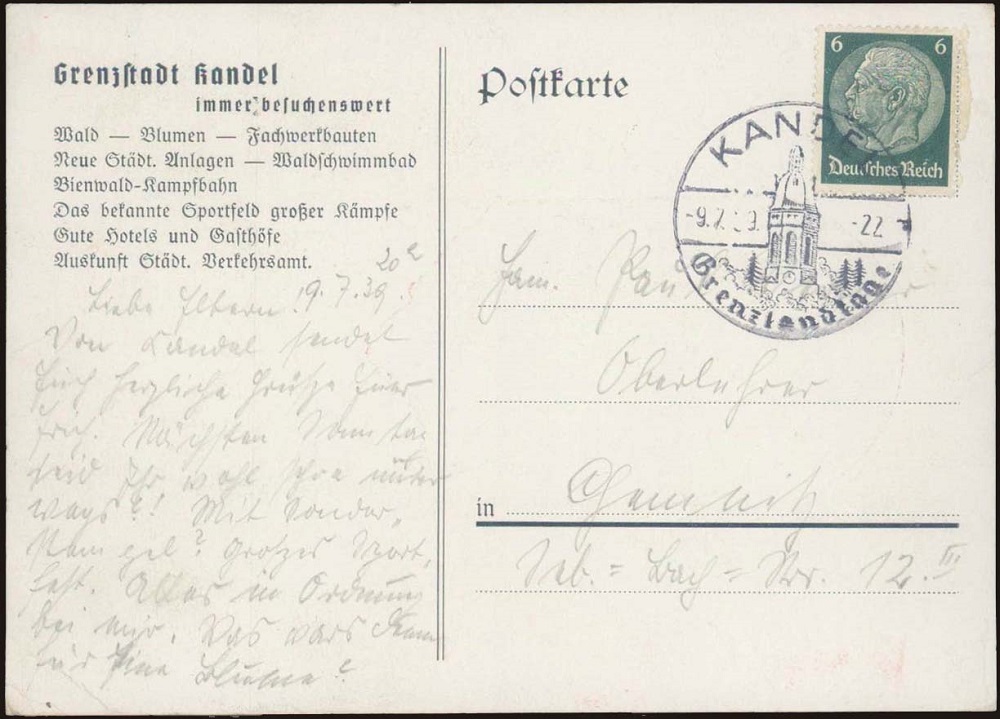 Grenzstadt Kandel
immer besuchenswert
Wald — Blumen — Fachwerkbauten
Neue Städt. Anlagen — Waldschwimmbad
Bienwald-Kampfbahn
Das bekannte Sportfeld großer Kämpfe
Gute Hotels und Gasthöfe
Auskunft Städt. Verkehrsamt.
Liebe Eltern! 9.7.39.
Von Kandel sendet
Euch herzliche Grüße Euer
Erich. Nächsten Sonntag
seid Ihr wohl schon unter
wegs?! Mit Sonder-
stempel? Großes Sport-
fest. Alles in Ordnung
bei mir. Was wars denn
für eine Blume?
Postkarte
6 6
Deutsches Reich
KANDEL
-9.7.39. -22
Grenzlandtage
Fam.
Oberlehrer
in Chemnitz
Seb.=Bach=Str. 12. III